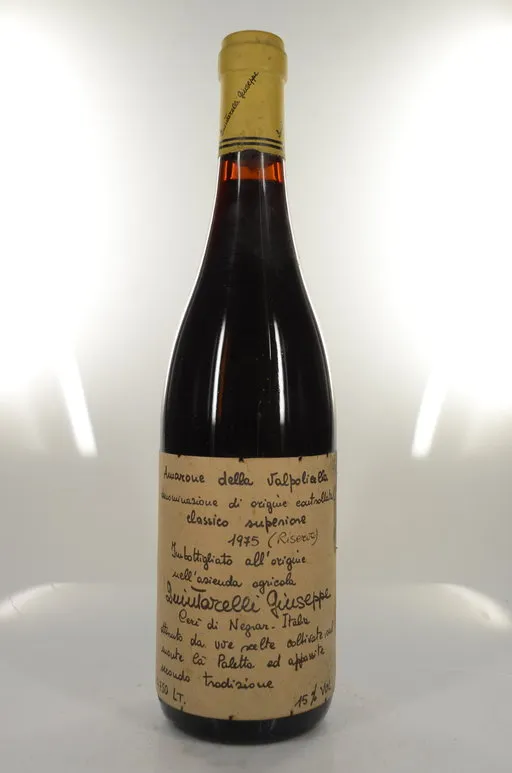 Quintarelli Giuseppe
Amarone della Valpolicella
denominazione di origine controllata
classico superiore
1975 (Riserva)
Imbottigliato all'origine
nell'azienda agricola
Quintarelli Giuseppe
Cerè di Negrar - Italia
ottenuto da uve scelte coltivate sul
monte Cà Paletta ed appassite
secondo tradizione
750 LT.
15% Vol.